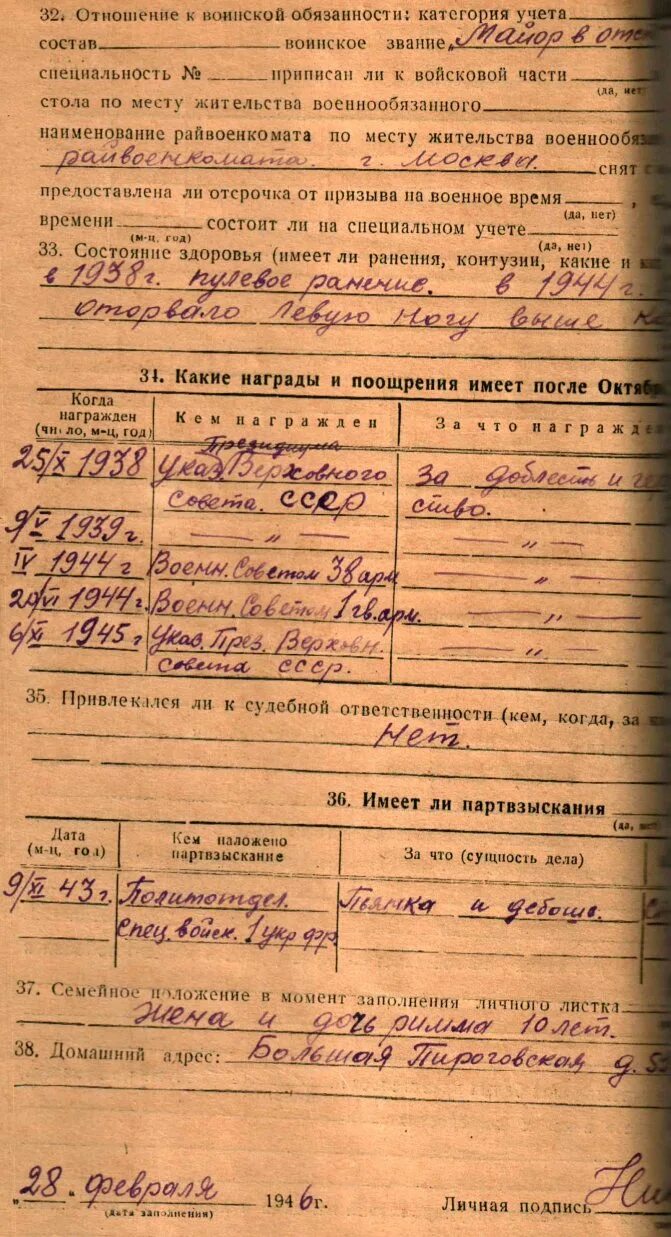 32. Отношение к воинской обязанности: категория учета
состав воинское звание „Майор в
специальность № приписан ли к войсковой части
(да, нет)
стола по месту жительства военнообязанного
наименование райвоенкомата по месту жительства военнообяз
райвоенкомата. г. Москвы. снят с
предоставлена ли отсрочка от призыва на военное время ,
(да, нет)
времени состоит ли на специальном учете
(м-ц, год) (да, нет)
33. Состояние здоровья (имеет ли ранения, контузии, какие и
в 1938г. пулевое ранение. в 1944г.
оторвало левую ногу выше
34. Какие награды и поощрения имеет после Октяб
Когда награжден (число, м-ц, год) Кем награжден За что награжд
Президиума
25/X 1938 Указ. Верховного За доблесть и ге
Совета. СССР ство.
9/V 1939г. — „ — — „ —
IV 1944г Военн. Советом 38 арм — „ —
20/VI 1944г. Военн. Советом 1 гв. арм. — „ —
6/XI 1945г Указ. През. Верховн. — „ —
Совета СССР.
35. Привлекался ли к судебной ответственности (кем, когда, за
Нет.
36. Имеет ли партвзыскания
(да, нет)
Дата (м-ц, год) Кем наложено партвзыскание За что (сущность дела)
9/XI 43г. Политотдел. Пьянка и дебошь.
Спец. войск. 1 укр фр
37. Семейное положение в момент заполнения личного листка
Жена и дочь римма 10 лет.
38. Домашний адрес: Большая Пироговская д.
„28„ февраля 1946г. Личная подпись
(дата заполнения)